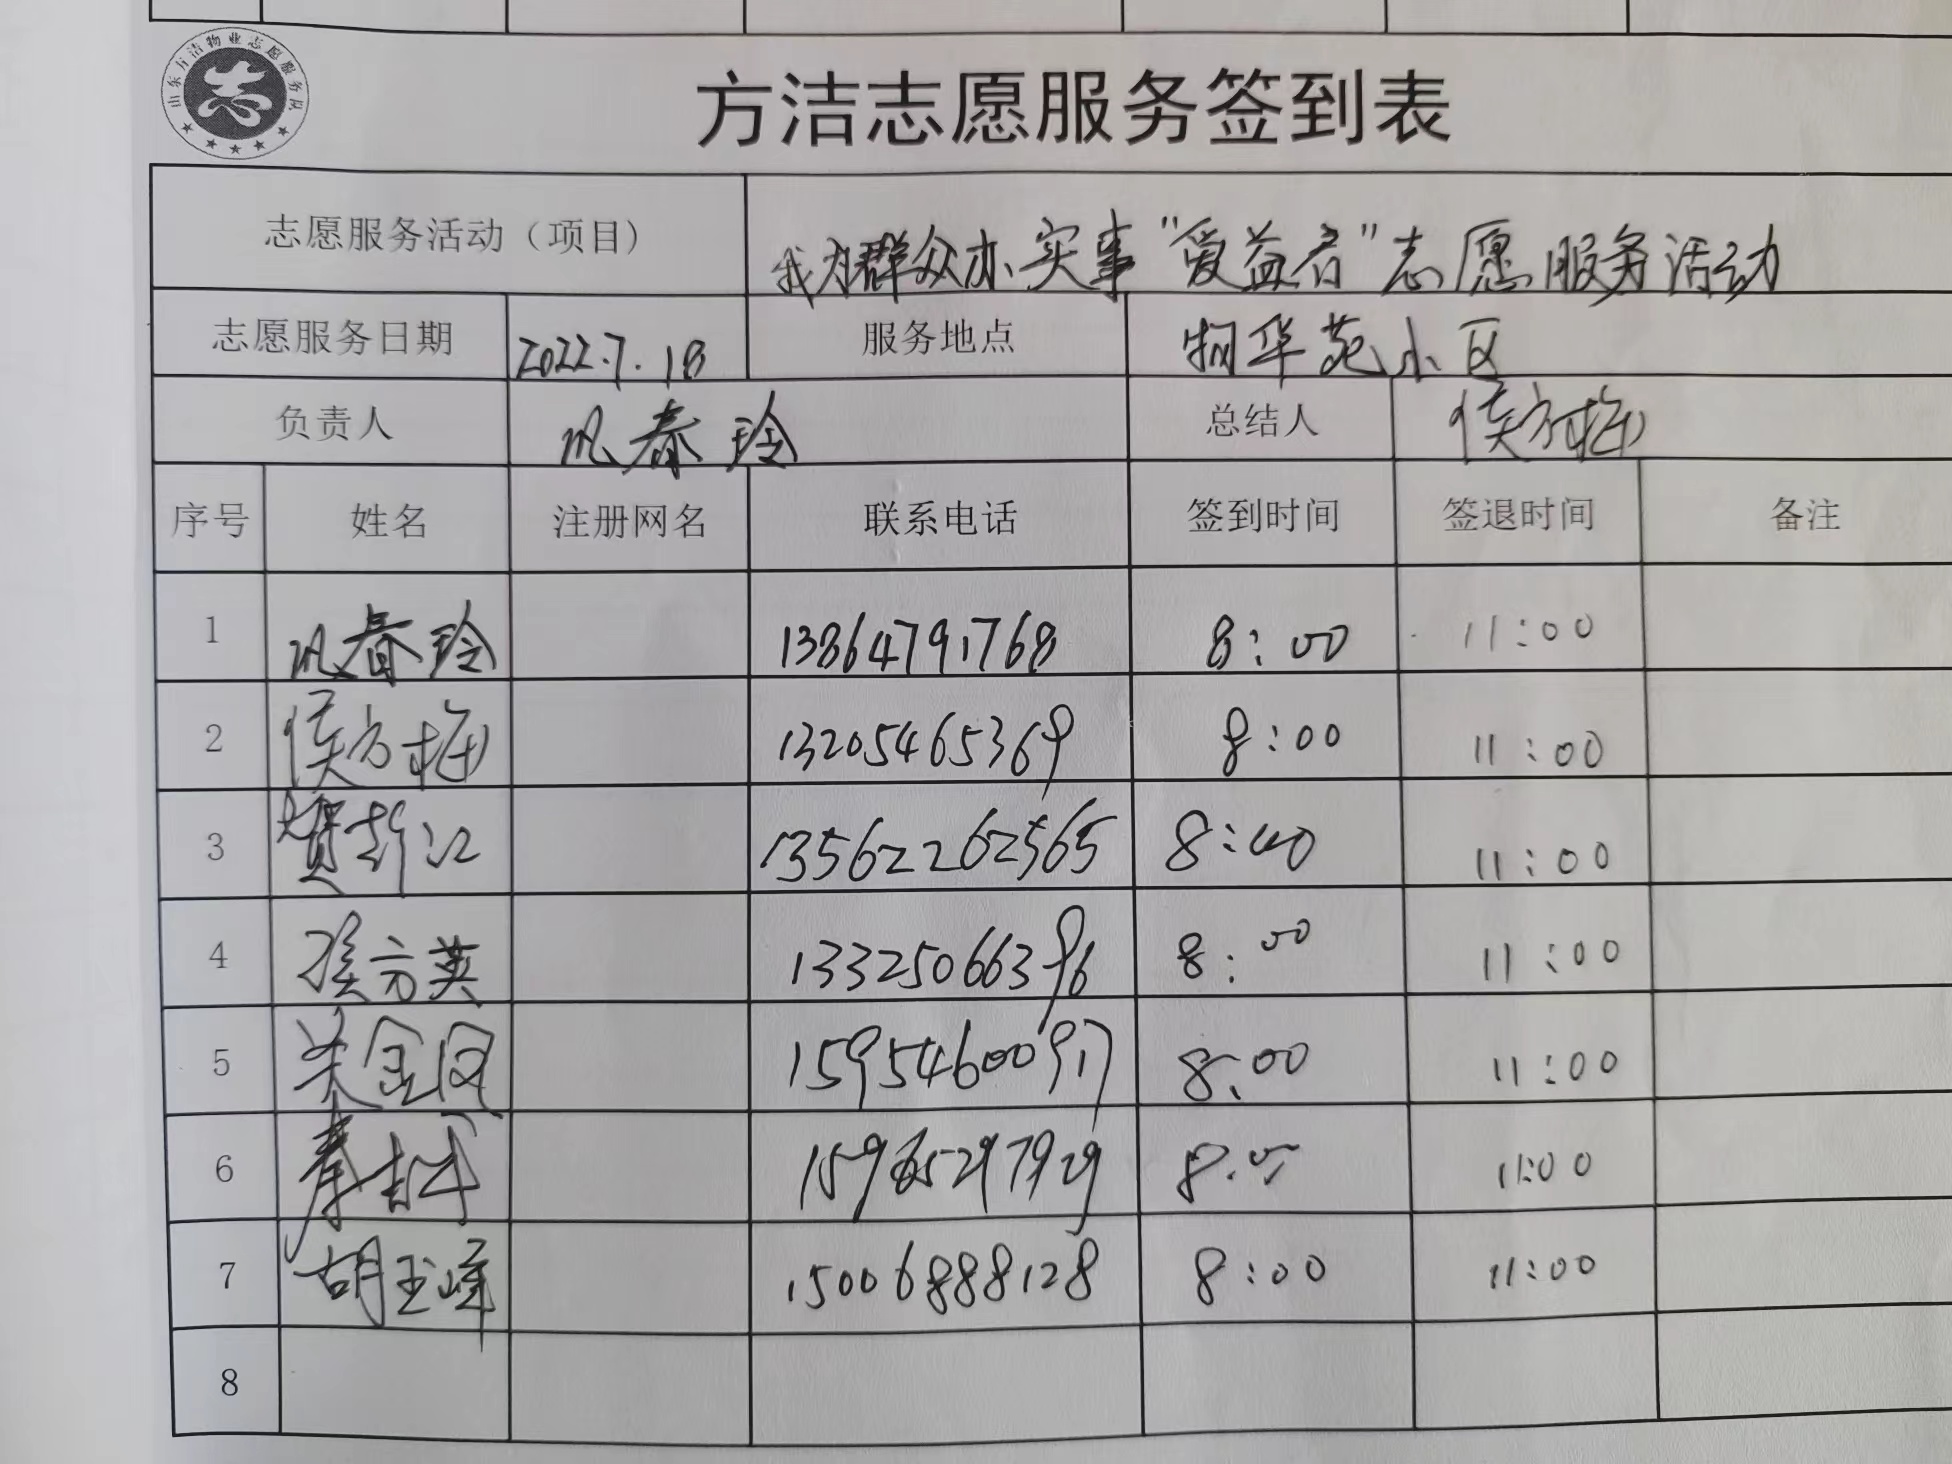 山东方洁物业志愿服务队
志
方洁志愿服务签到表
志愿服务活动（项目） 我为群众办实事“爱益者”志愿服务活动
志愿服务日期 2022.7.18 服务地点 物华苑小区
负责人 巩春玲 总结人 侯方梅
序号 姓名 注册网名 联系电话 签到时间 签退时间 备注
1 巩春玲 13864791768 8:00 11:00
2 侯方梅 13205465369 8:00 11:00
3 13562262565 8:00 11:00
4 侯方英 13325066396 8:00 11:00
5 关金凤 15954600917 8:00 11:00
6 8:00 11:00
7 胡玉峰 15006888128 8:00 11:00
8